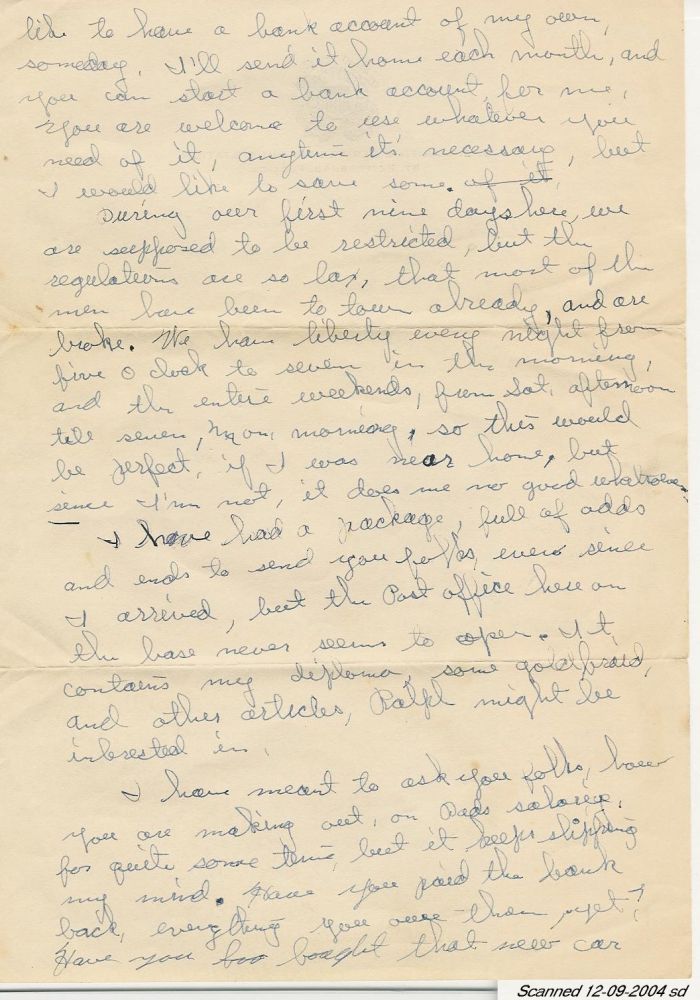 like to have a bank account of my own,
someday. I'll send it home each month, and
you can start a bank account, for me,
You are welcome to use whatever you
need of it, anytime it's necessary, but
I would like to save some. of it.
During our first nine days here, we
are supposed to be restricted, but the
regulations are so lax, that most of the
men have been to town already, and are
broke. We have liberty every night from
five o clock to seven in the morning,
and the entire weekends, from Sat. afternoon
till seven, Mon, morning, so this would
be perfect, if I was near home, but
since I'm not, it does me no good whatsoever.
I have had a package, full of odds
and ends to send you folks, ever since
I arrived, but the Post office here on
the base never seems to open. It
contains my diploma, some gold braid,
and other articles, Ralph might be
interested in.
I have meant to ask you folks, how
you are making out, on Dads salary,
for quite some time, but it keeps slipping
my mind. Have you paid the bank
back, everything you owe them yet?
Have you boo bought that new car
Scanned 12-09-2004 sd